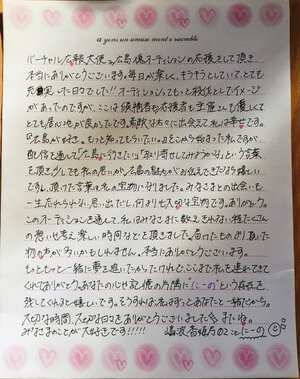 a yons un amuse ment e nsemble
バーチャル広報大使 in 広島 オーディションの応援をして頂き
本当にありがとうございます。毎日が楽しく、キラキラとしていて、とても
充実した日々でした!! オーディションってもっと殺伐としたイメージ
があったのですが、ここは候補者も応援者も主催さんも優しくて
とても居心地が良かったです。素敵な方々に出会えて私は幸せです。
「広島が好き。もっと知ってもらいたい」とそこから始まった私ですが
配信を通して「広島に行きたい」「取り寄せしてみようかな」という言葉
を頂き、少しでも私の思いが、広島の魅力がお伝えできたなら嬉しい
ですし、頂けた言葉は私の宝物になりました。みなさまとの出会いも
一生忘れられない思い出だし、何よりも大切な宝物です。ありがとう。
このオーディションを通して、私はみなさまに数えきれない程たくさん
の想いも考え、楽しい時間などを頂きました。届けたものより頂いた
物の方が多いかもしれません。本当にありがとうございます。
もっともっと一緒に夢を追いたかったけれど、ここまで私を連れてきて
くれてありがとう。あなたの心に、記憶の片隅に"にーの"という存在を
残してくれると嬉しいです。そうすれば私はずっとあなたと一緒だから。
大切な時間、大切な日々をありがとうございました。またね。
みなさまのことが大好きです!!!!!
02 こと にーの